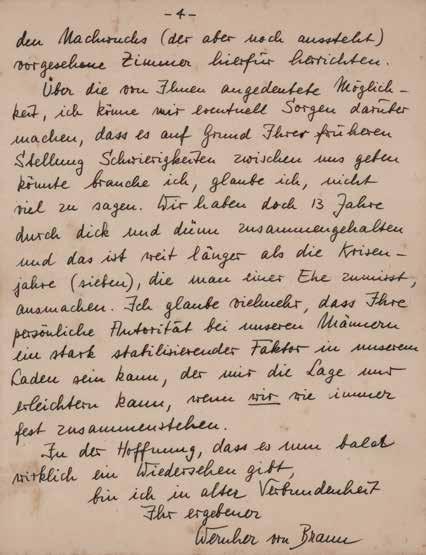 -4-
den Nachwuchs (der aber noch aussteht)
vorgesehene Zimmer hierfür herrichten.
Über die von Ihnen angedeutete Möglich-
keit, ich könne mir eventuell Sorgen darüber
machen, dass es auf Grund Ihrer früheren
Stellung Schwierigkeiten zwischen uns geben
könnte brauche ich, glaube ich, nicht
viel zu sagen. Wir haben doch 13 Jahre
durch dick und dünn zusammengehalten
und das ist weit länger als die Krisen-
jahre (sieben), die man einer Ehe zumisst,
ausmachen. Ich glaube vielmehr, dass Ihre
persönliche Autorität bei unseren Männern
ein stark stabilisierender Faktor in unserem
Laden sein kann, der mir die Lage nur
erleichtern kann, wenn wir wie immer
fest zusammenstehen.
In der Hoffnung, dass es nun bald
wirklich ein Wiedersehen gibt,
bin ich in alter Verbundenheit
Ihr ergebener
Wernher von Braun